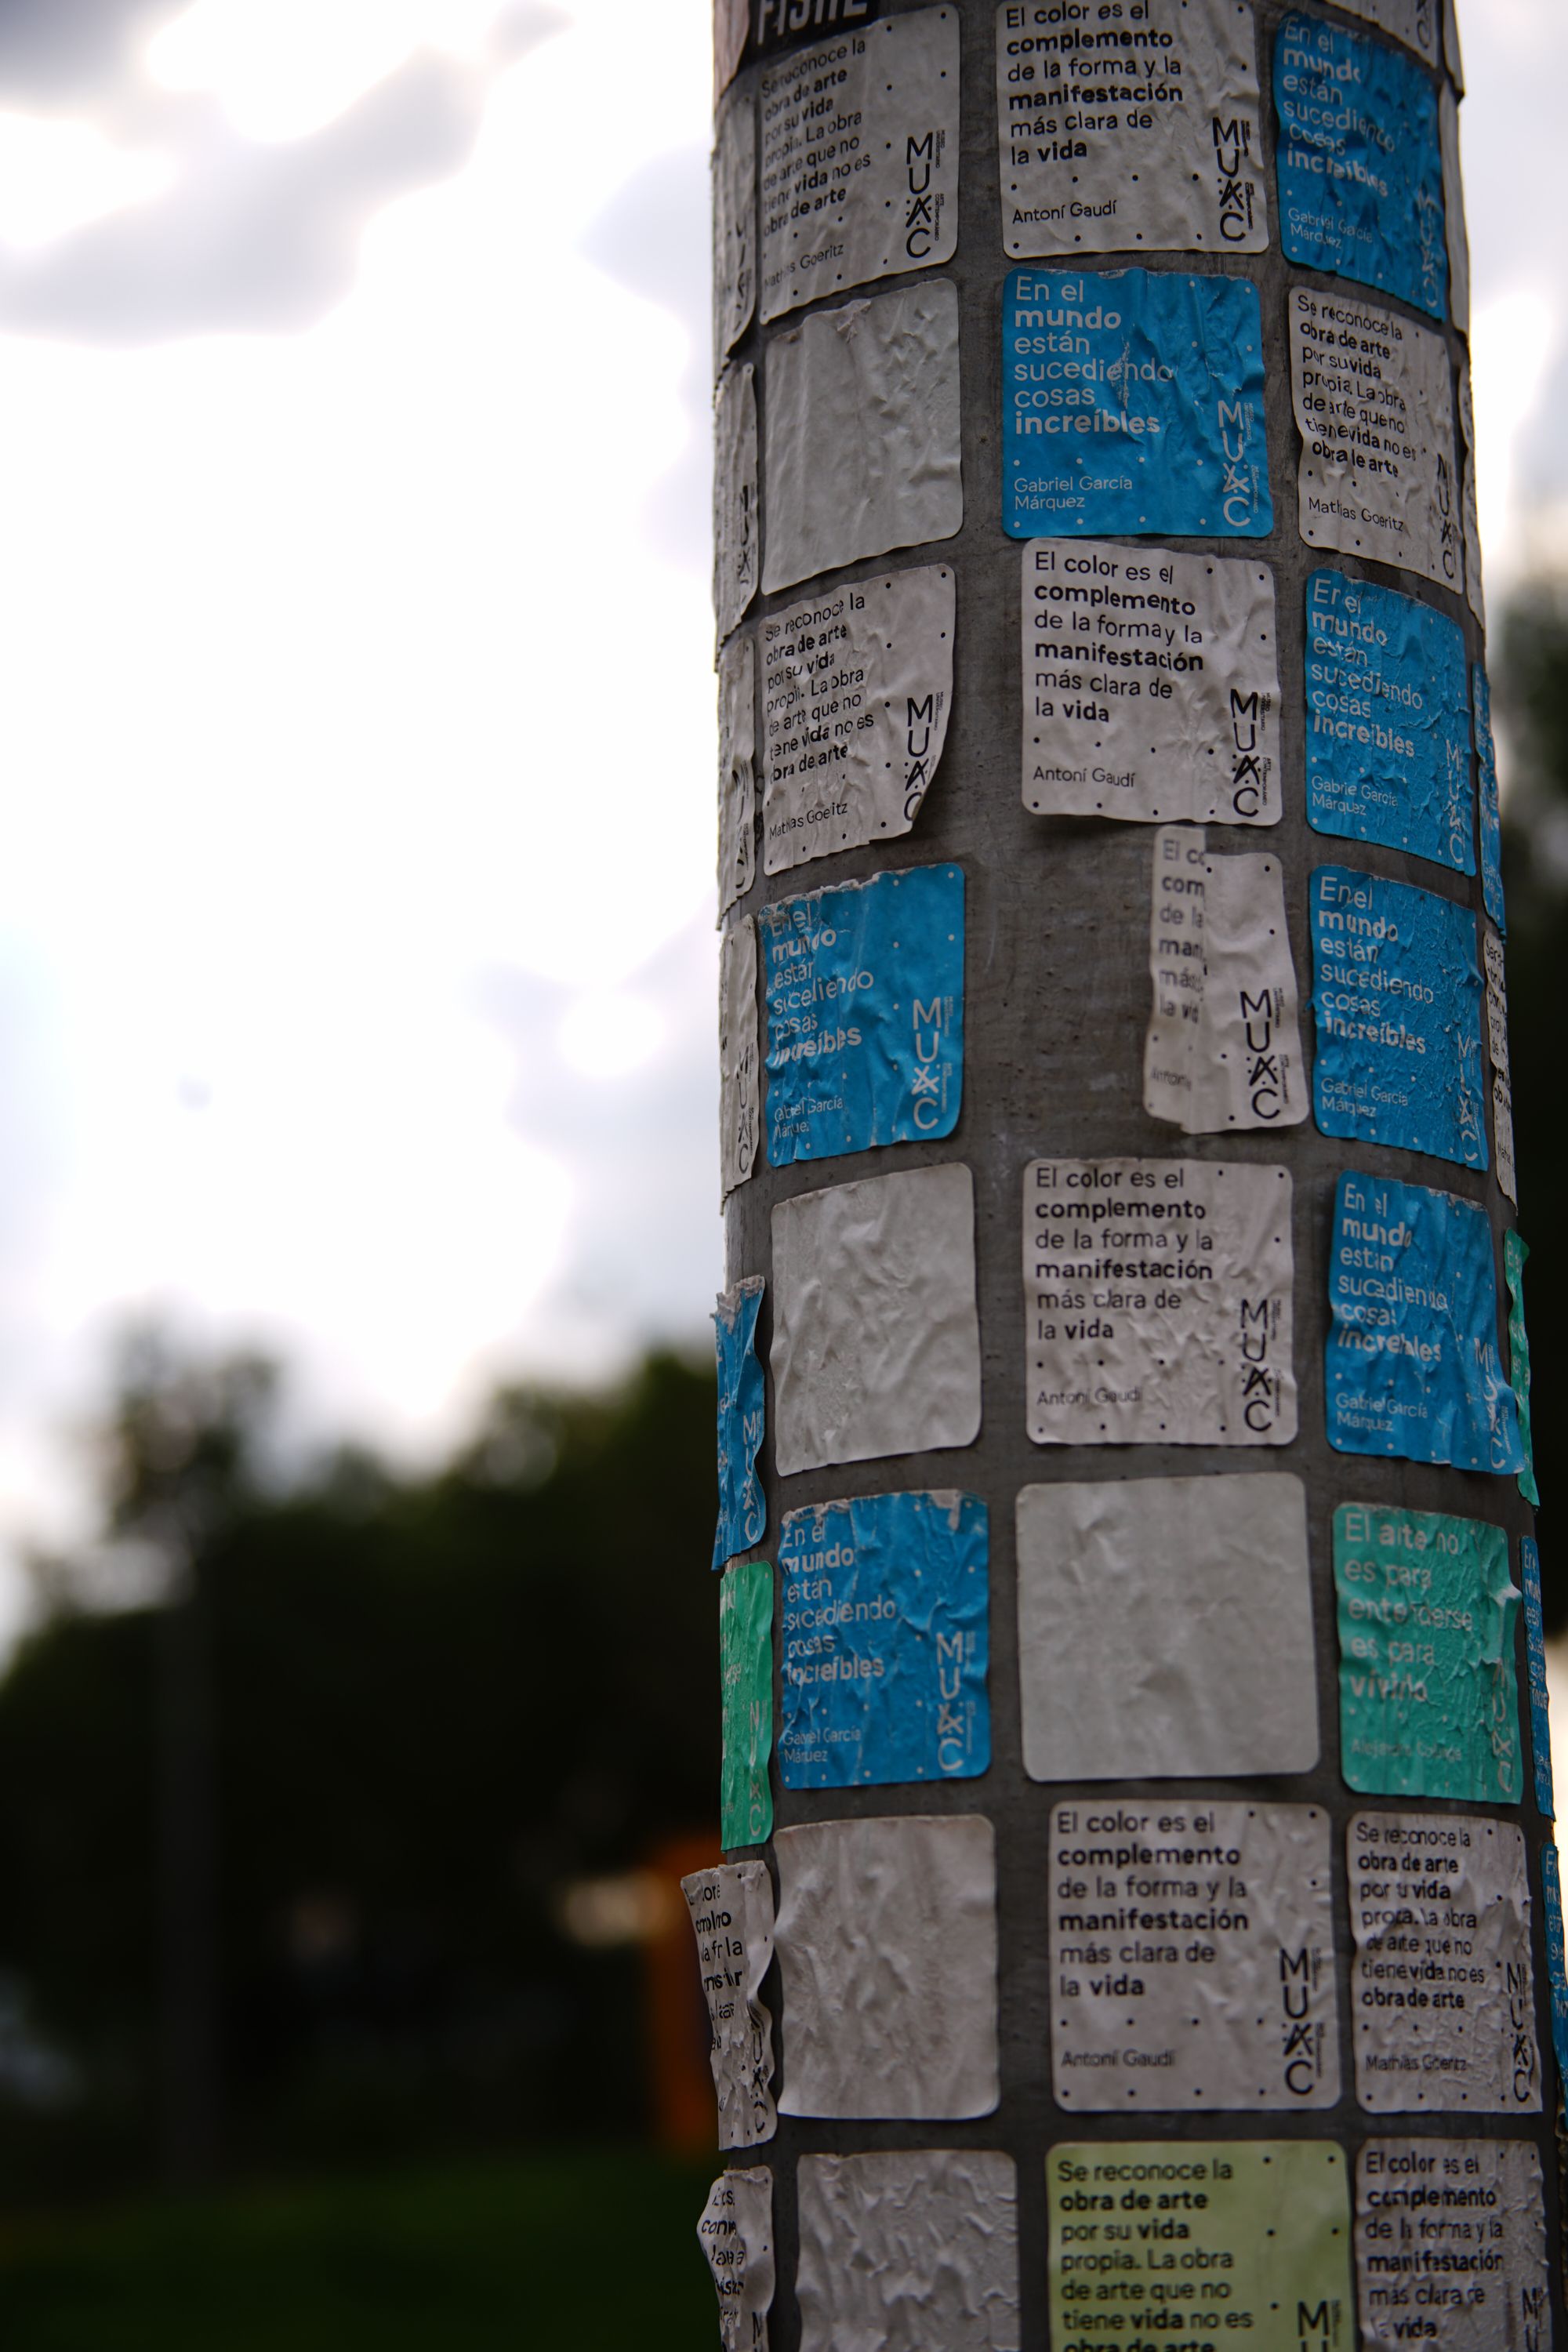 Se reconoce la
obra de arte
por su vida
propia. La obra
de arte que no
tiene vida no es
obra de arte
Mathias Goeritz
MUAC
El color es el
complemento
de la forma y la
manifestación
más clara de
la vida
Antoní Gaudí
MUAC
En el
mundo
están
sucediendo
cosas
increíbles
Gabriel García
Márquez
En el
mundo
están
sucediendo
cosas
increíbles
Gabriel García
Márquez
MUAC
Se reconoce la
obra de arte
por su vida
propia. La obra
de arte que no
tiene vida no es
obra de arte
Mathias Goeritz
MUAC
Se reconoce la
obra de arte
por su vida
propia. La obra
de arte que no
tiene vida no es
obra de arte
Mathias Goeritz
MUAC
El color es el
complemento
de la forma y la
manifestación
más clara de
la vida
Antoní Gaudí
MUAC
En el
mundo
están
sucediendo
cosas
increíbles
Gabriel García
Márquez
MUAC
En el
mundo
están
sucediendo
cosas
increíbles
Gabriel García
Márquez
MUAC
El co
com
de la
man
más
la vid
MUAC
En el
mundo
están
sucediendo
cosas
increíbles
Gabriel García
Márquez
MUAC
El color es el
complemento
de la forma y la
manifestación
más clara de
la vida
Antoní Gaudí
MUAC
En el
mundo
están
sucediendo
cosas
increíbles
Gabriel García
Márquez
MUAC
En el
mundo
están
sucediendo
cosas
increíbles
Gabriel García
Márquez
MUAC
El arte no
es para
entenderse
es para
vivirlo
El color es el
complemento
de la forma y la
manifestación
más clara de
la vida
Antoní Gaudí
MUAC
Se reconoce la
obra de arte
por su vida
propia. La obra
de arte que no
tiene vida no es
obra de arte
Mathias Goeritz
MUAC
Se reconoce la
obra de arte
por su vida
propia. La obra
de arte que no
tiene vida no es
obra de arte
M
El color es el
complemento
de la forma y la
manifestación
más clara de
la vida
M